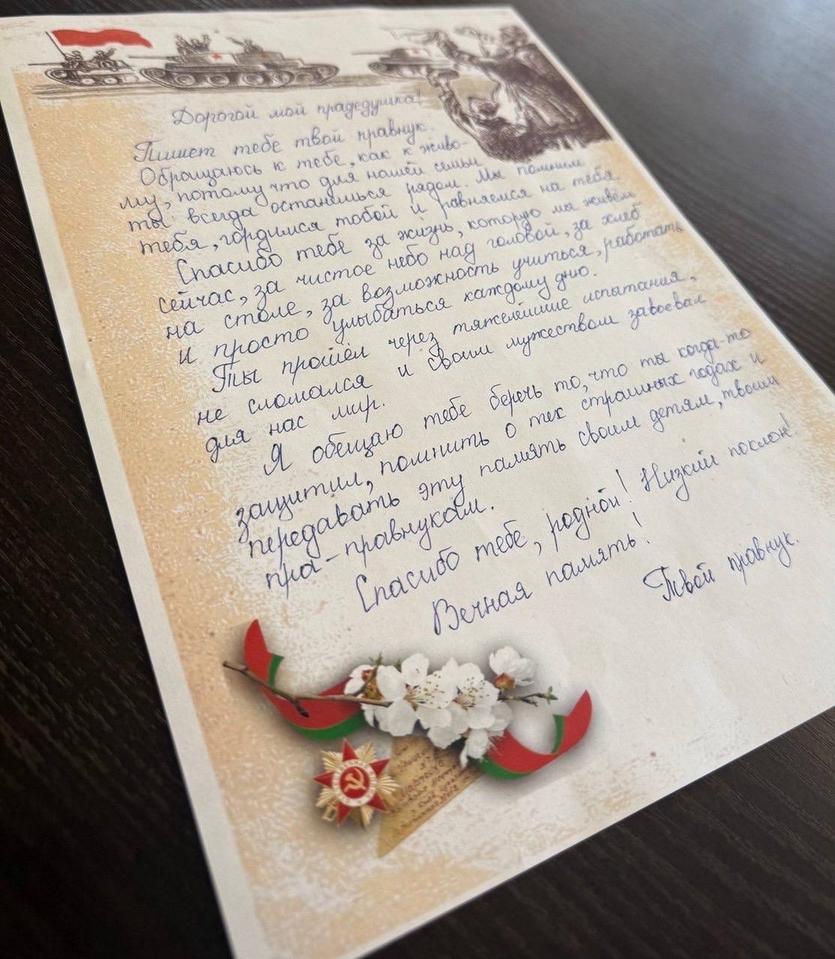 Дорогой мой прадедушка!
Пишет тебе твой правнук.
Обращаюсь к тебе, как к живо-
му, потому что для нашей семьи
ты всегда останешься рядом. Мы помним
тебя, гордимся тобой и равняемся на тебя
Спасибо тебе за жизнь, которую мы живём
сейчас, за чистое небо над головой, за хлеб
на столе, за возможность учиться, работать
и просто улыбаться каждому дню.
Ты прошёл через тяжелейшие испытания,
не сломался и своим мужеством завоевал
для нас мир.
Я обещаю тебе беречь то, что ты когда-то
защитил, помнить о тех страшных годах и
передавать эту память своим детям, твоим
пра-правнукам.
Спасибо тебе, родной! Низкий поклон!
Вечная память!
Твой правнук.